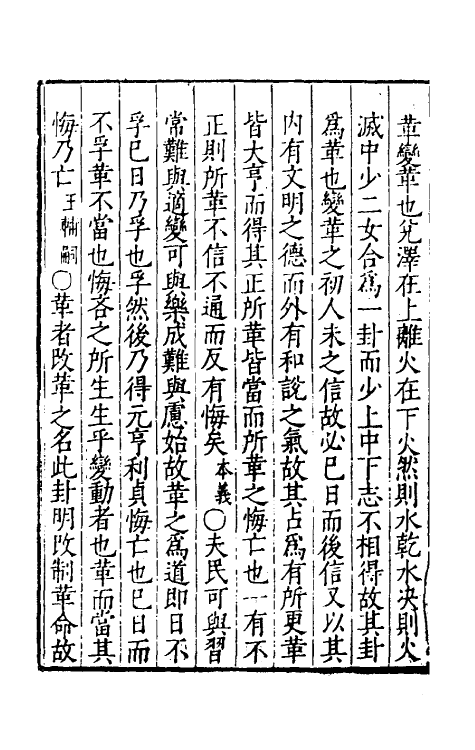 革變革也兌澤在上離火在下火然則水乾水決則火
滅中少二女合爲一卦而少上中下志不相得故其卦
爲革也變革之初人未之信故必巳日而後信又以其
内有文明之德而外有和說之氣故其占爲有所更革
皆大亨而得其正所革皆當而所革之悔亡也一有不
正則所革不信不通而反有悔矣本義〇夫民可與習
常難與適變可與樂成難與慮始故革之爲道即日不
孚巳日乃孚也孚然後乃得元亨利貞悔亡也巳日而
不孚革不當也悔吝之所生生乎變動者也革而當其
悔乃亡王輔嗣〇革者改革之名此卦明改制革命故